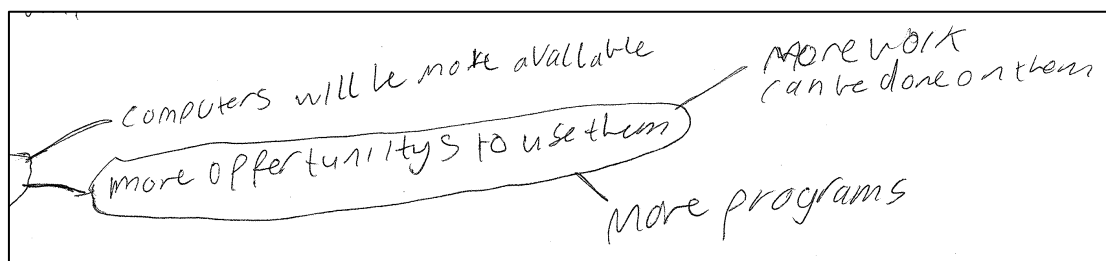 computers will be more available
more offertuniitys to use them
more work
can be done on them
more programs